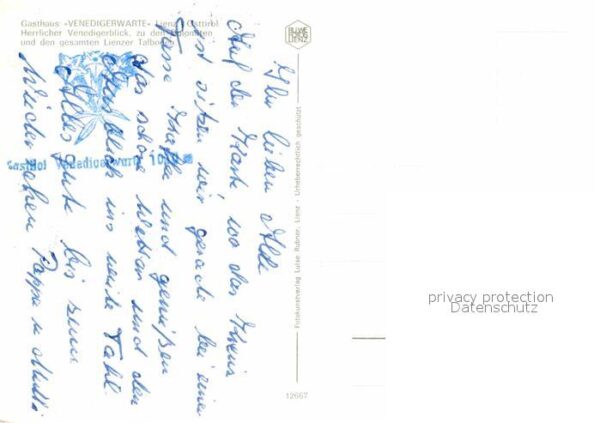 Gasthaus «VENEDIGERWARTE» Lienz, Osttirol
Herrlicher Venedigerblick, zu den Dolomiten
und den gesamten Lienzer Talboden
Ihr lieben Alle
Auf der Karte, wo das Kreuz
ist sitzen wir gerade bei einer
Tasse Kaffe und genießen
das schöne Wetter und den
Ausblick ins weite Tahl
Alles Gute bis zum
Wiedersehen Pappa u Mutti
Gasthof Venedigerwarte
Fotokunstverlag Luise Rubner, Lienz - Urheberrechtlich geschützt
12667
privacy protection
Datenschutz